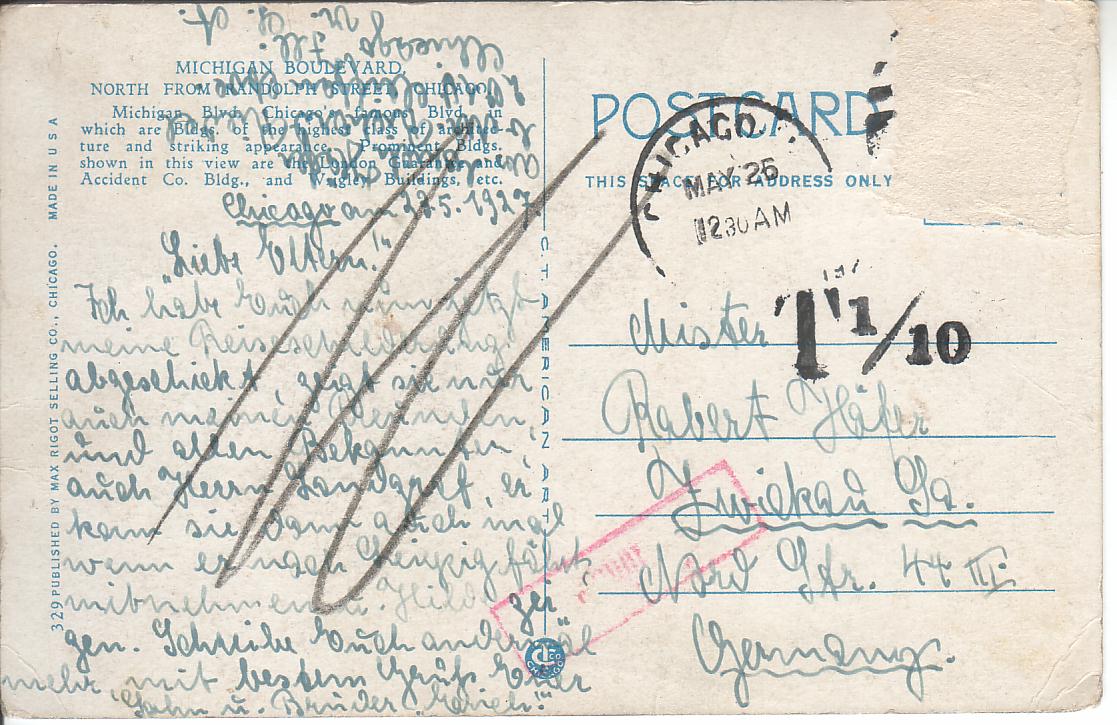 MICHIGAN BOULEVARD,
NORTH FROM RANDOLPH STREET, CHICAGO.
Michigan Blvd. Chicago's famous Blvd. in
which are Bldgs. of the highest class of architec-
ture and striking appearance. Prominent Bldgs.
shown in this view are the London Guarantee and
Accident Co. Bldg., and Wrigley Buildings, etc.
Chicago
Ill.
U. S. A.
Chicago am 22.5.1927.
"Liebe Eltern!"
Ich habe Euch nun jetzt
meine Reiseschilderung
abgeschickt, zeigt sie nur
auch meinen Freunden,
und allen Bekannten,
auch Herrn Landgraf, er
kann sie dann auch mal
wenn er nach Leipzig fährt
mitnehmen u. Hild zei
gen. Schreibe Euch andermal
mehr, mit bestem Gruß Euer
Sohn u. Bruder "Erich!"
329 PUBLISHED BY MAX RIGOT SELLING CO., CHICAGO. MADE IN U S A
C. T. AMERICAN ART
POST CARD
THIS SPACE FOR ADDRESS ONLY
CHICAGO
MAY 26
12 30 AM
T 1/10
Mister
Robert Häfer
Zwickau Sa.
Nord Str. 44 III.
Germany.
CHICAGO